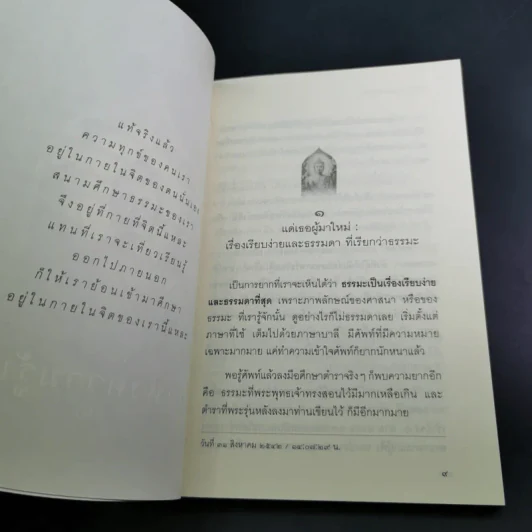 แท้จริงแล้ว
ความทุกข์ของคนเรา
อยู่ในกายในจิตของตนนั่นเอง
สนามศึกษาธรรมะของเรา
จึงอยู่ที่กายที่จิตนี้แหละ
แทนที่เราจะเที่ยวเรียนรู้
ออกไปภายนอก
ก็ให้เราย้อนเข้ามาศึกษา
อยู่ในกายในจิตของเรานี้แหละ
๑
แด่เธอผู้มาใหม่ :
เรื่องเรียบง่ายและธรรมดา ที่เรียกว่าธรรมะ
เป็นการยากที่เราจะเห็นได้ว่า ธรรมะเป็นเรื่องเรียบง่าย
และธรรมดาที่สุด เพราะภาพลักษณ์ของศาสนา หรือของ
ธรรมะ ที่เรารู้จักนั้น ดูอย่างไรก็ไม่ธรรมดาเลย เริ่มตั้งแต่
ภาษาที่ใช้ เต็มไปด้วยภาษาบาลี มีศัพท์ที่มีความหมาย
เฉพาะมากมาย แค่ทำความเข้าใจศัพท์ก็ยากนักหนาแล้ว
พอรู้ศัพท์แล้วลงมือศึกษาตำราจริงๆ ก็พบความยากอีก
คือ ธรรมะที่พระพุทธเจ้าทรงสอนไว้มีมากเหลือเกิน และ
ตำราที่พระรุ่นหลังลงมาท่านเขียนไว้ ก็มีอีกมากมาย
วันที่ ๓๑ สิงหาคม ๒๕๔๒ / ๑๔:๐๘:๒๙ น.
๙